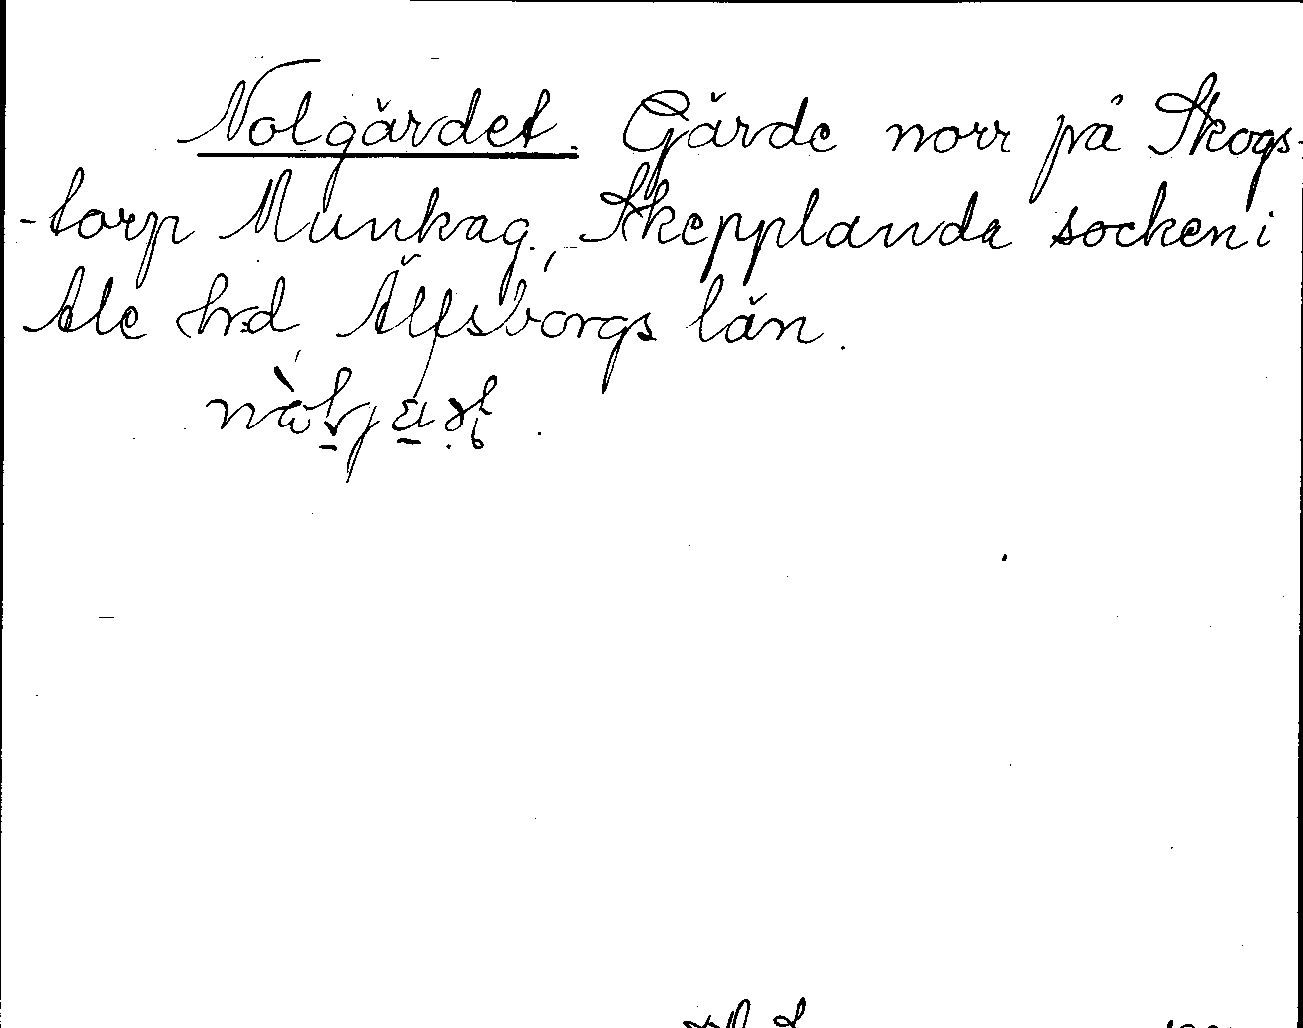 Nolgärdet. Gärde norr på Skogs-
-torp Munkag., Skepplanda socken i
Ale hrd, Älfsborgs län.